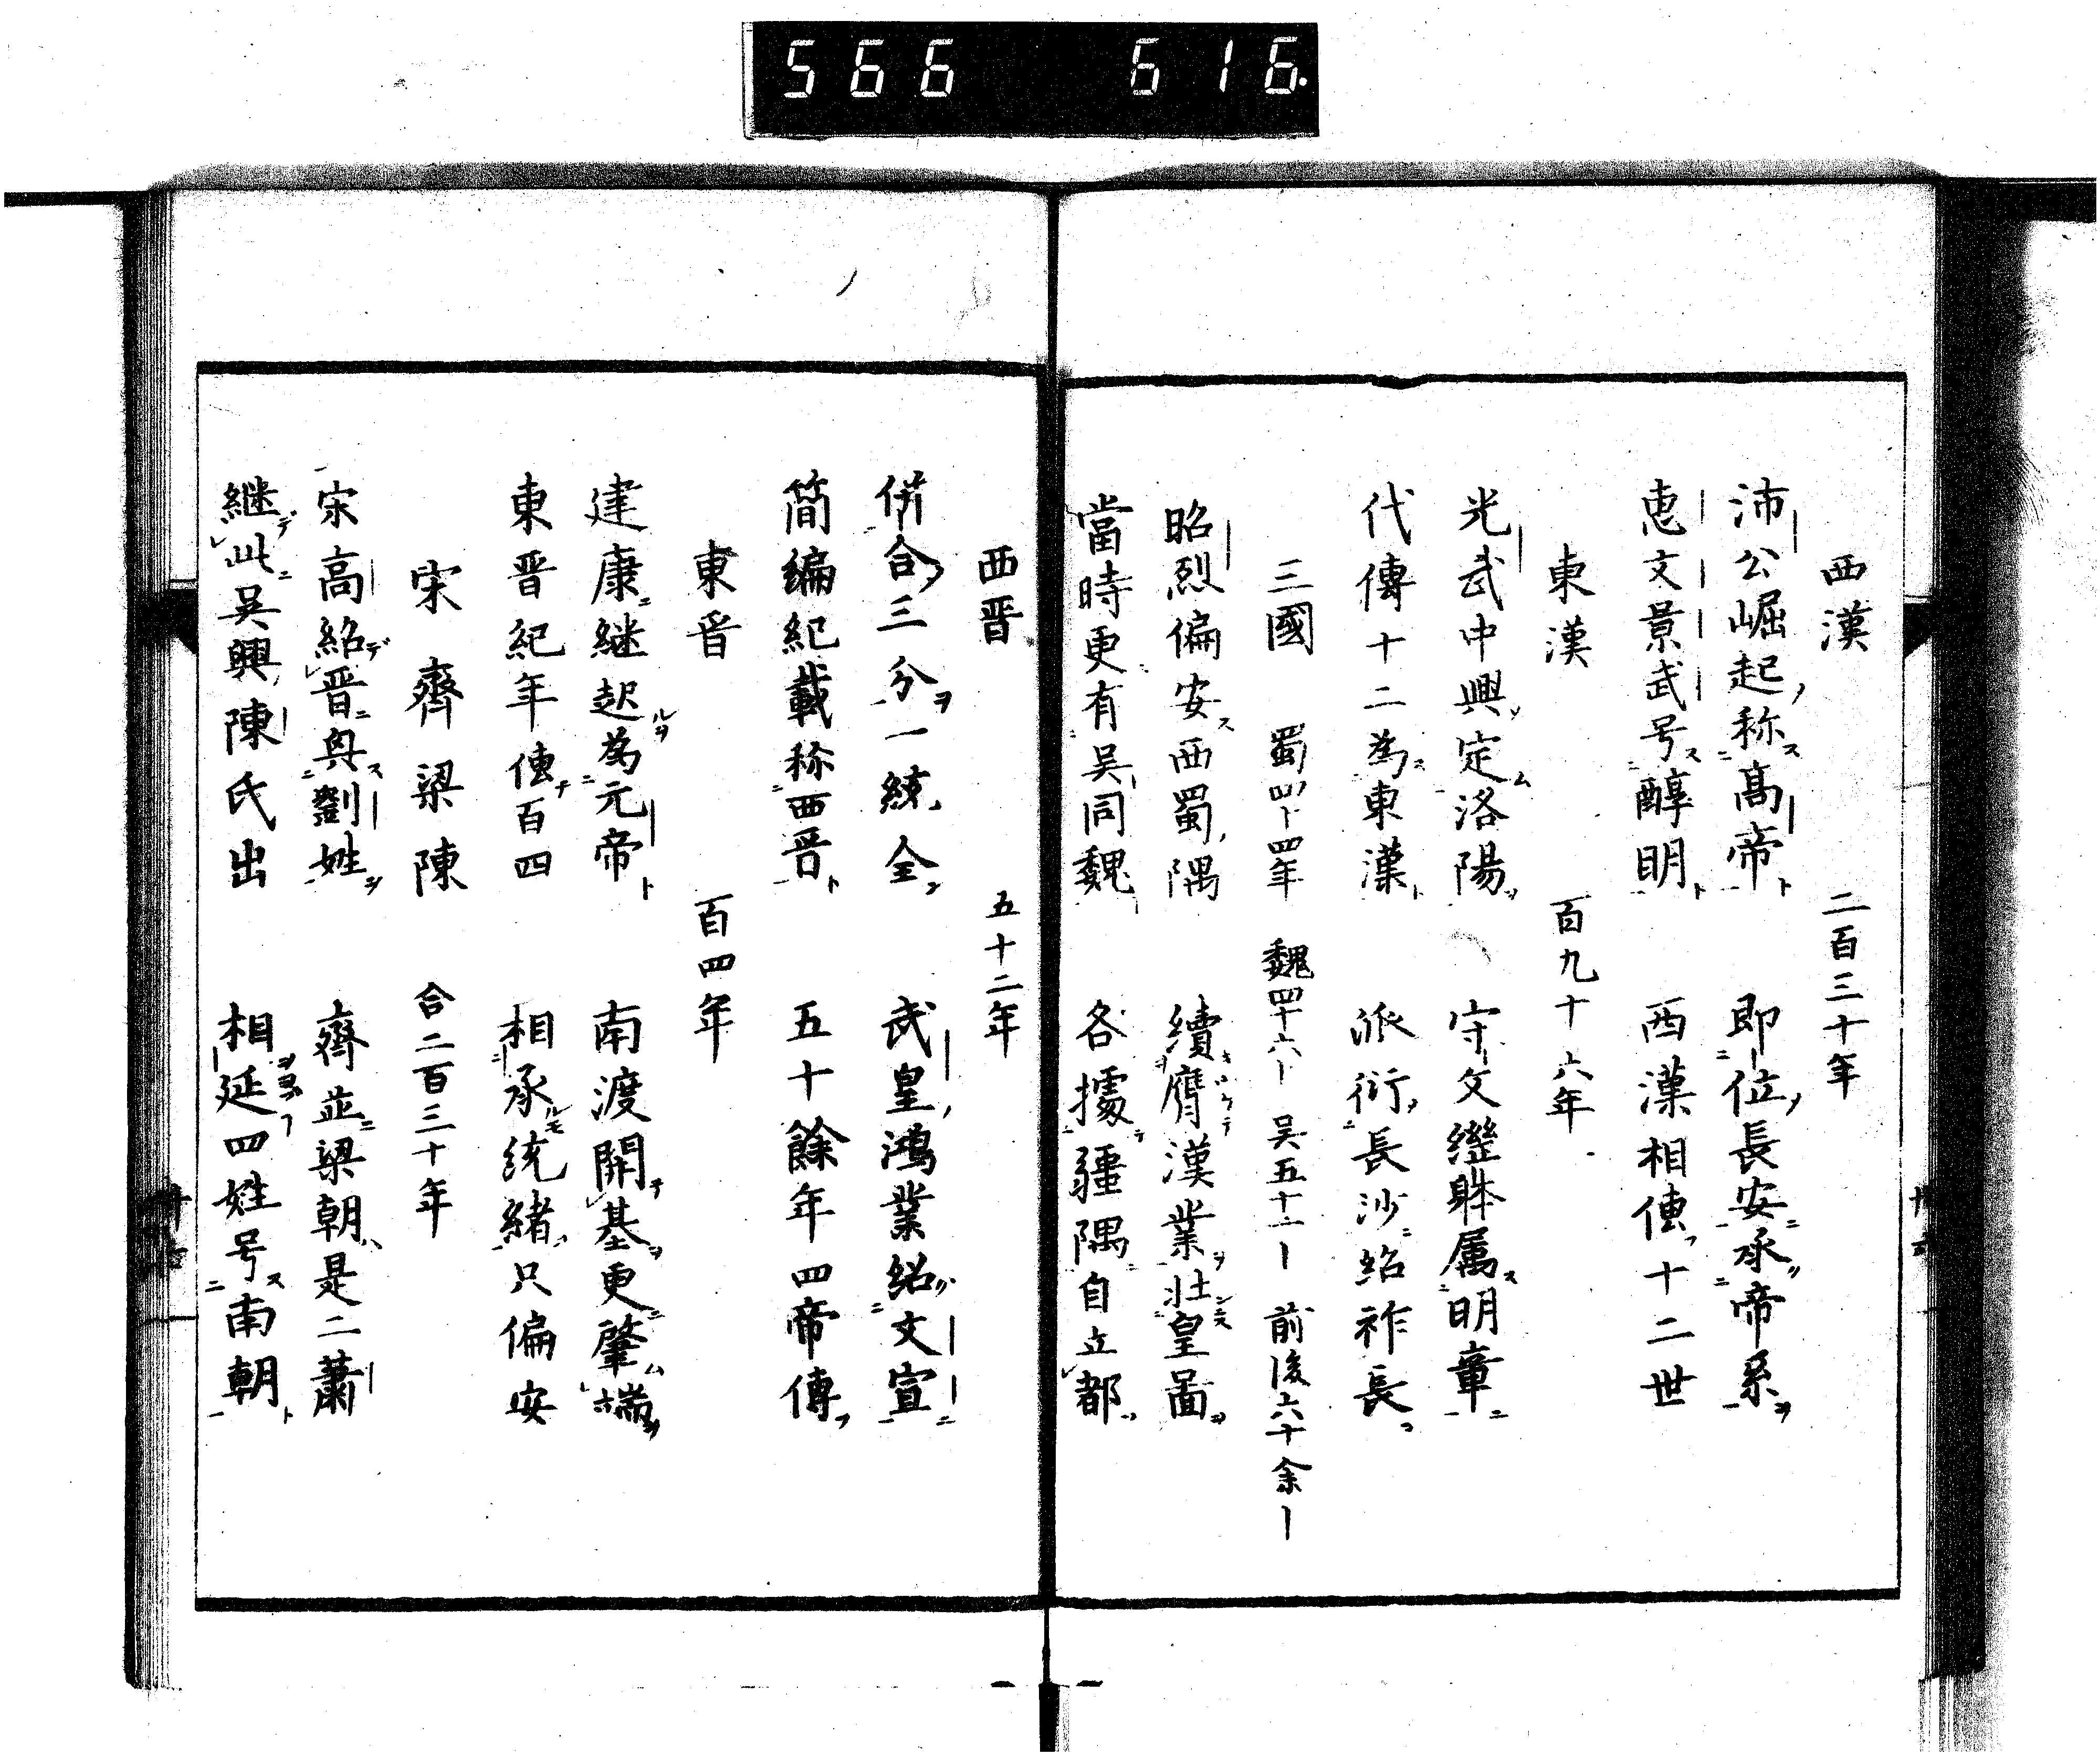 566 616.
西漢 二百三十年
沛公崛起称高帝 即位長安承帝系
恵文景武号醇明 西漢相傳十二世
東漢 百九十六年
光武中興定洛陽 守文繼躰属明章
代傳十二為東漢 派衍長沙紹祚長
三國 蜀四十四年 魏四十六〡 吴五十二〡 前後六十余〡
昭烈偏安西蜀隅 續膺漢業壮皇啚
當時更有吴同魏 各據疆隅自立都
西晋 五十二年
併合三分一統全 武皇鴻業紹文宣
簡編紀載称西晋 五十餘年四帝傳
東晋 百四年
建康継起為元帝 南渡開基更肇端
東晋紀年傳百四 相承統緒只偏安
宋齊梁陳 合二百三十年
宋高紹晋與劉姓 齊並梁朝是二蕭
継此吴興陳氏出 相延四姓号南朝